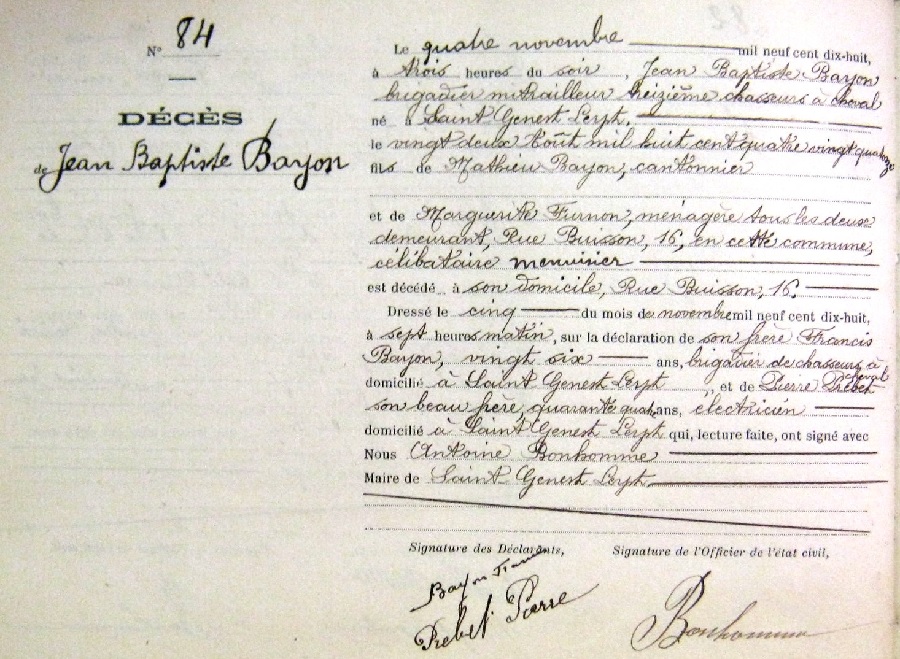 N° 84
DÉCÈS
de Jean Baptiste Bayon
Le quatre novembre mil neuf cent dix-huit,
à trois heures du soir, Jean Baptiste Bayon
brigadier mitrailleur treizième chasseurs à cheval
né à Saint Genest Lerpt.
le vingt deux Août mil huit cent quatre vingt quatorze
fils de Mathieu Bayon, cantonnier
et de Marguerite Furnon, ménagère tous les deux
demeurant, Rue Buisson, 16, en cette commune,
célibataire menuisier
est décédé à son domicile, Rue Buisson, 16.
Dressé le cinq du mois de novembre mil neuf cent dix-huit,
à sept heures matin, sur la déclaration de son frère Francis
Bayon, vingt six ans, brigadier de chasseurs à cheval
domicilié à Saint Genest Lerpt, et de Pierre Prebet
son beau frère, quarante quatre ans, électricien
domicilié à Saint Genest Lerpt qui, lecture faite, ont signé avec
Nous Antoine Bonhomme
Maire de Saint Genest Lerpt.
Signature des Déclarants, Signature de l'Officier de l'état civil,
Bayon
Prebet Pierre
Bonhomme